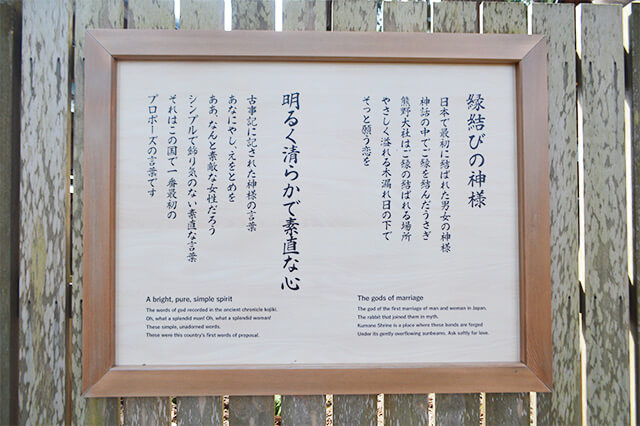 縁結びの神様
日本で最初に結ばれた男女の神様
神話の中でご縁を結んだうさぎ
熊野大社はご縁の結ばれる場所
やさしく溢れる木漏れ日の下で
そっと願う恋を
明るく清らかで素直な心
古事記に記された神様の言葉
あなにやし、えをとめを
ああ、なんと素敵な女性だろう
シンプルで飾り気のない素直な言葉
それはこの国で一番最初の
プロポーズの言葉です
A bright, pure, simple spirit
The words of god recorded in the ancient chronicle kojiki.
Oh, what a splendid man! Oh, what a splendid woman!
These simple, unadorned words.
These were this country's first words of proposal.
The gods of marriage
The god of the first marriage of man and woman in Japan,
The rabbit that joined them in myth.
Kumano Shrine is a place where these bonds are forged
Under its gently overflowing sunbeams. Ask softly for love.